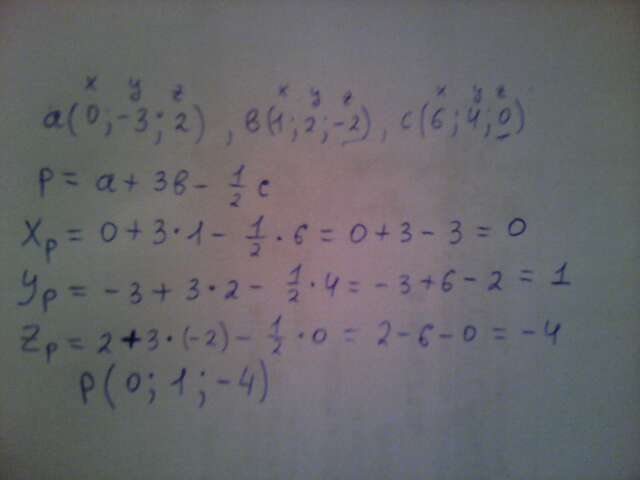 x y z x y z x y z
a(0;-3;2), в(1;2;-2), c(6;4;0)
p = a + 3в - 1/2 c
Xp = 0 + 3·1 - 1/2·6 = 0 + 3 - 3 = 0
Yp = -3 + 3·2 - 1/2·4 = -3 + 6 - 2 = 1
Zp = 2 + 3·(-2) - 1/2·0 = 2 - 6 - 0 = -4
p(0;1;-4)